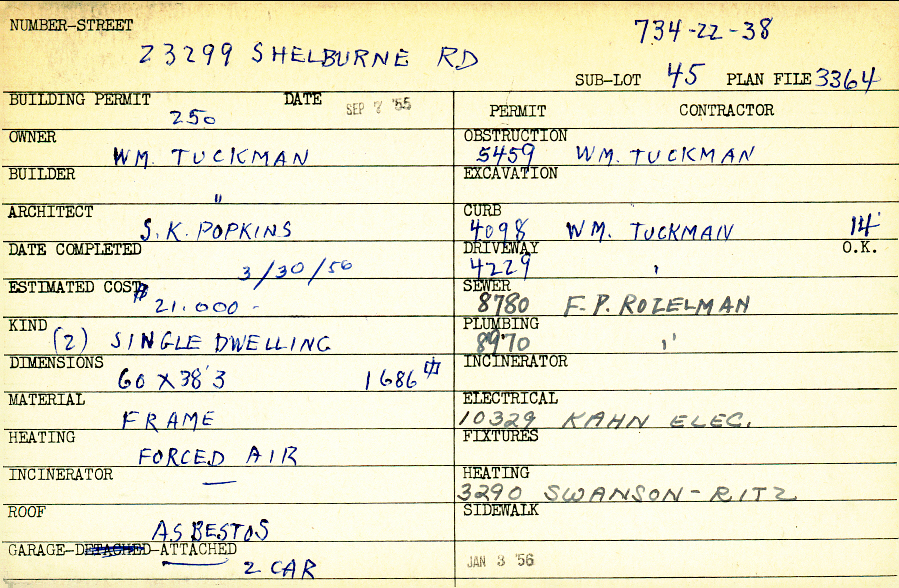 NUMBER-STREET
734-22-38
23299 SHELBURNE RD
SUB-LOT 45 PLAN FILE 3364
BUILDING PERMIT DATE
250 SEP 7 '55
OWNER
WM. TUCKMAN
BUILDER
"
ARCHITECT
S. K. POPKINS
DATE COMPLETED
3/30/56
ESTIMATED COST
$21,000-
KIND
(2) SINGLE DWELLING
DIMENSIONS
60 X 38'3 1686
MATERIAL
FRAME
HEATING
FORCED AIR
INCINERATOR
—
ROOF
ASBESTOS
GARAGE-DETACHED-ATTACHED
2 CAR
PERMIT CONTRACTOR
OBSTRUCTION
5459 WM. TUCKMAN
EXCAVATION
CURB
4098 WM. TUCKMAN 14'
DRIVEWAY O.K.
4229 '
SEWER
8780 F. P. ROZELMAN
PLUMBING
8970 "
INCINERATOR
ELECTRICAL
10329 KAHN ELEC.
FIXTURES
HEATING
3290 SWANSON-RITZ
SIDEWALK
JAN 3 '56